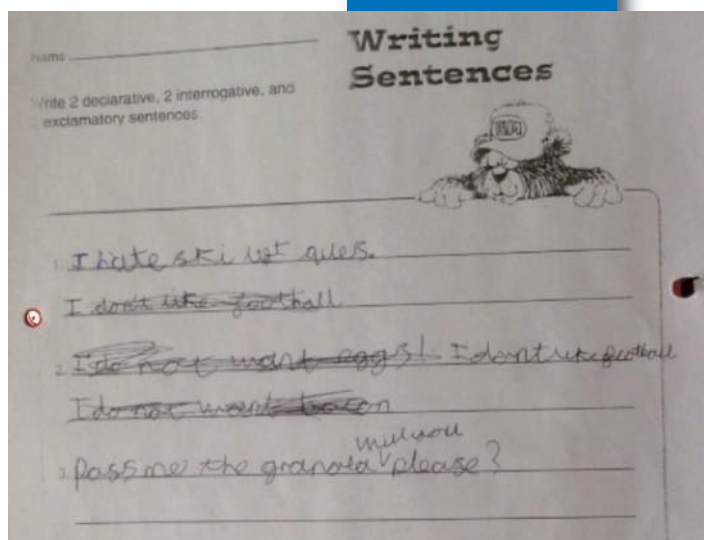 Writing
Sentences
Name
Write 2 declarative, 2 interrogative, and
exclamatory sentences.
1. I hate ski ques.
I don't like football
2. I do not want eggs! I dont like football
I do not want bacon
will you
3. Pass me the granola please?